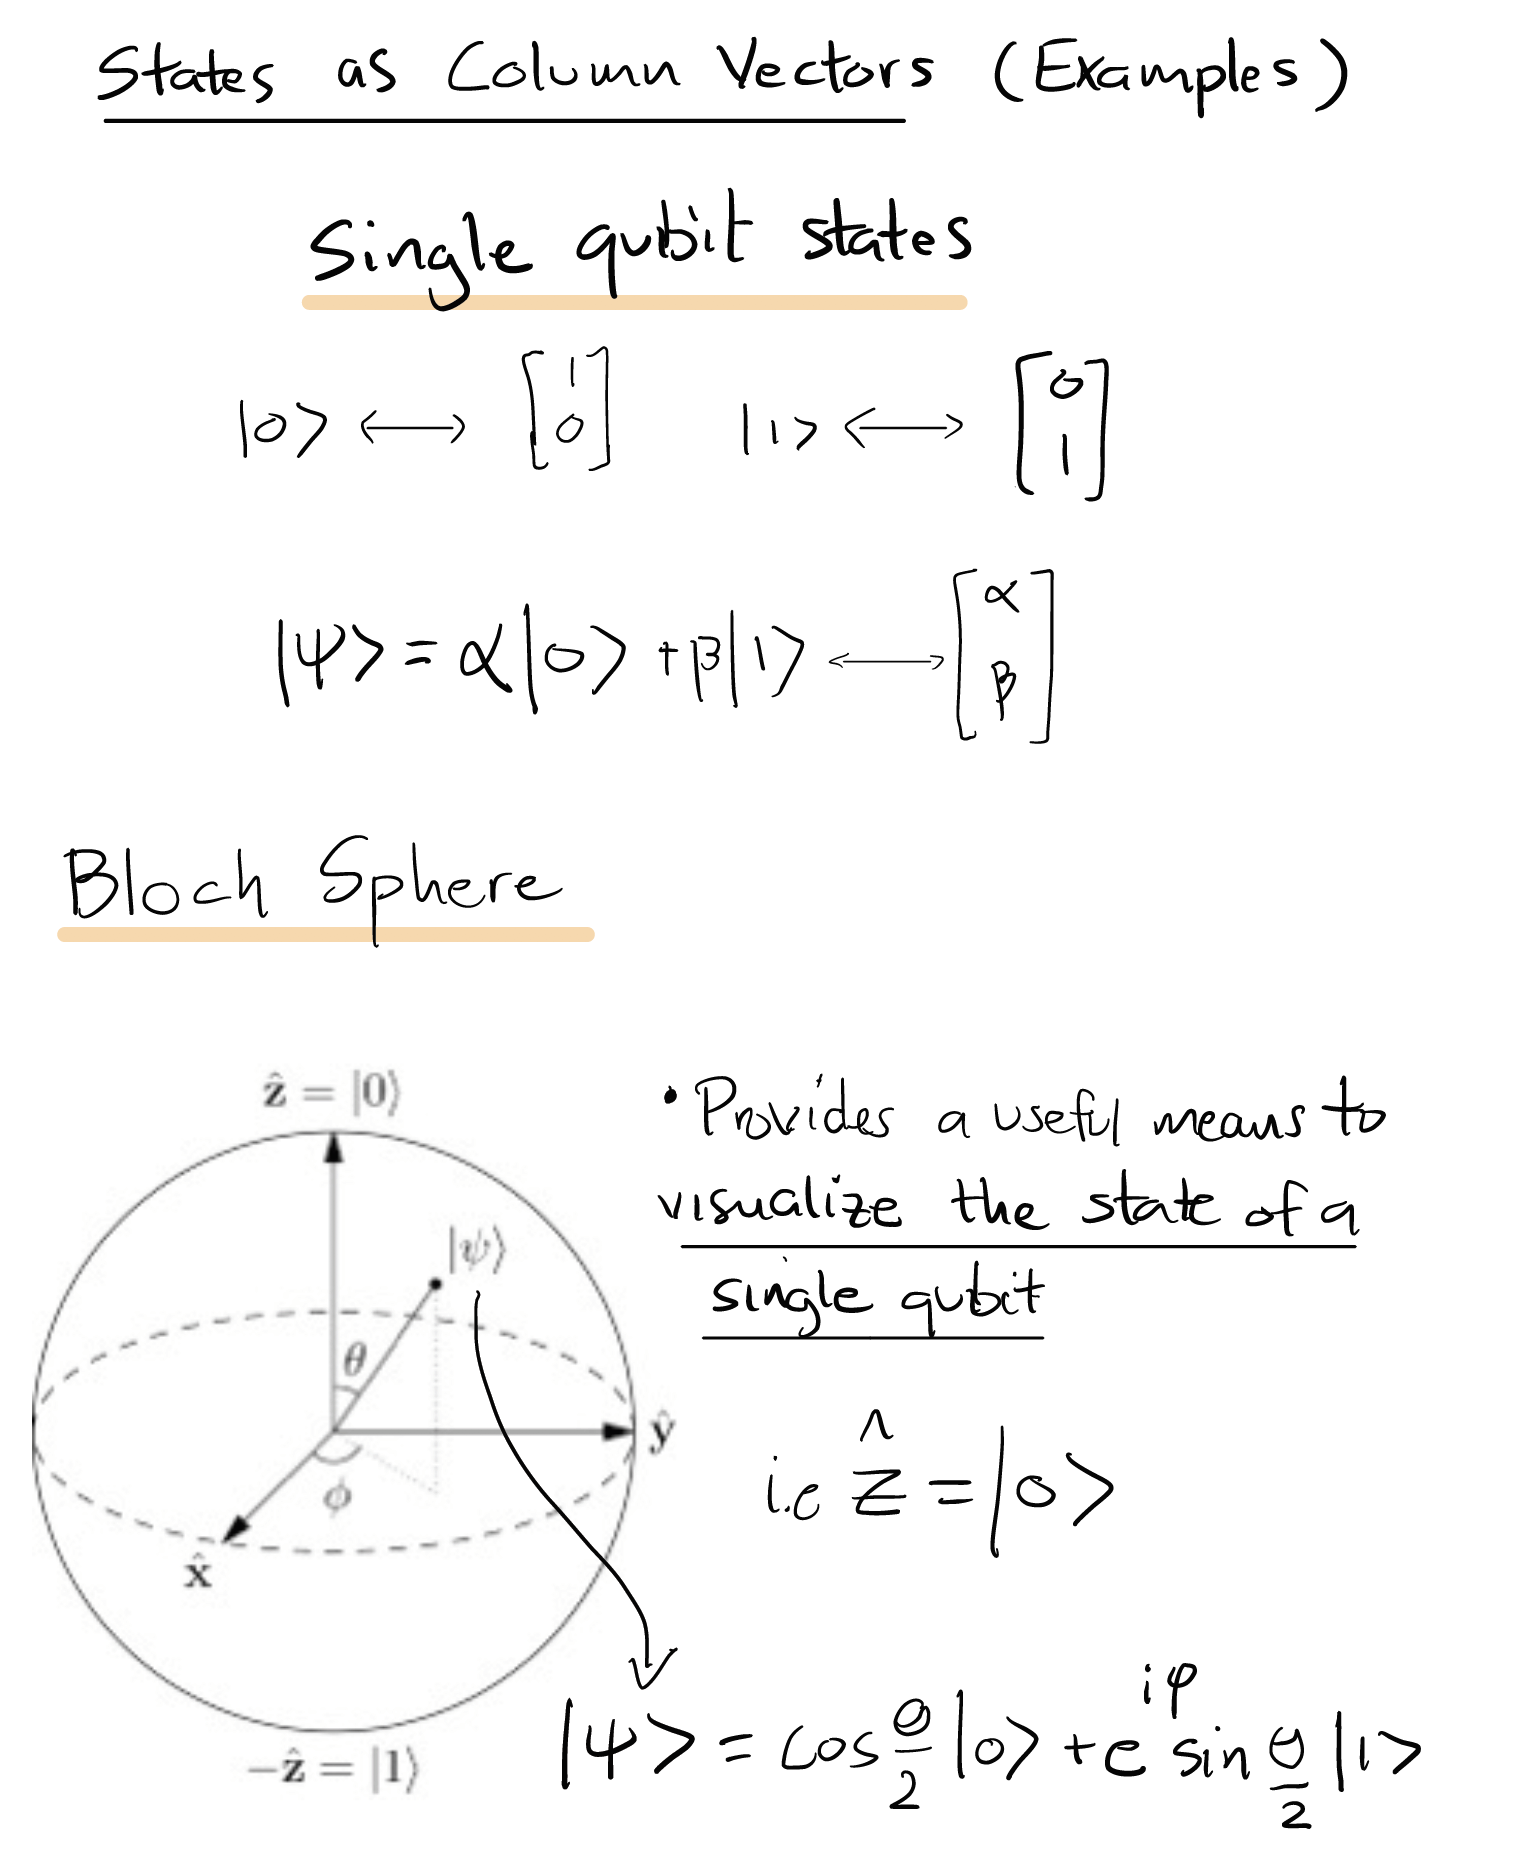 States as Column Vectors (Examples)
Single qubit states
|0> ⟷ [1 0] |1> ⟷ [0 1]
|ψ> = α|0> + β|1> ⟷ [α β]
Bloch Sphere
ẑ = |0⟩
• Provides a useful means to
visualize the state of a
single qubit
|ψ⟩
θ
ŷ
ϕ
x̂
i.e ẑ = |0>
|ψ> = cos θ/2 |0> + e^{iφ} sin θ/2 |1>
−ẑ = |1⟩